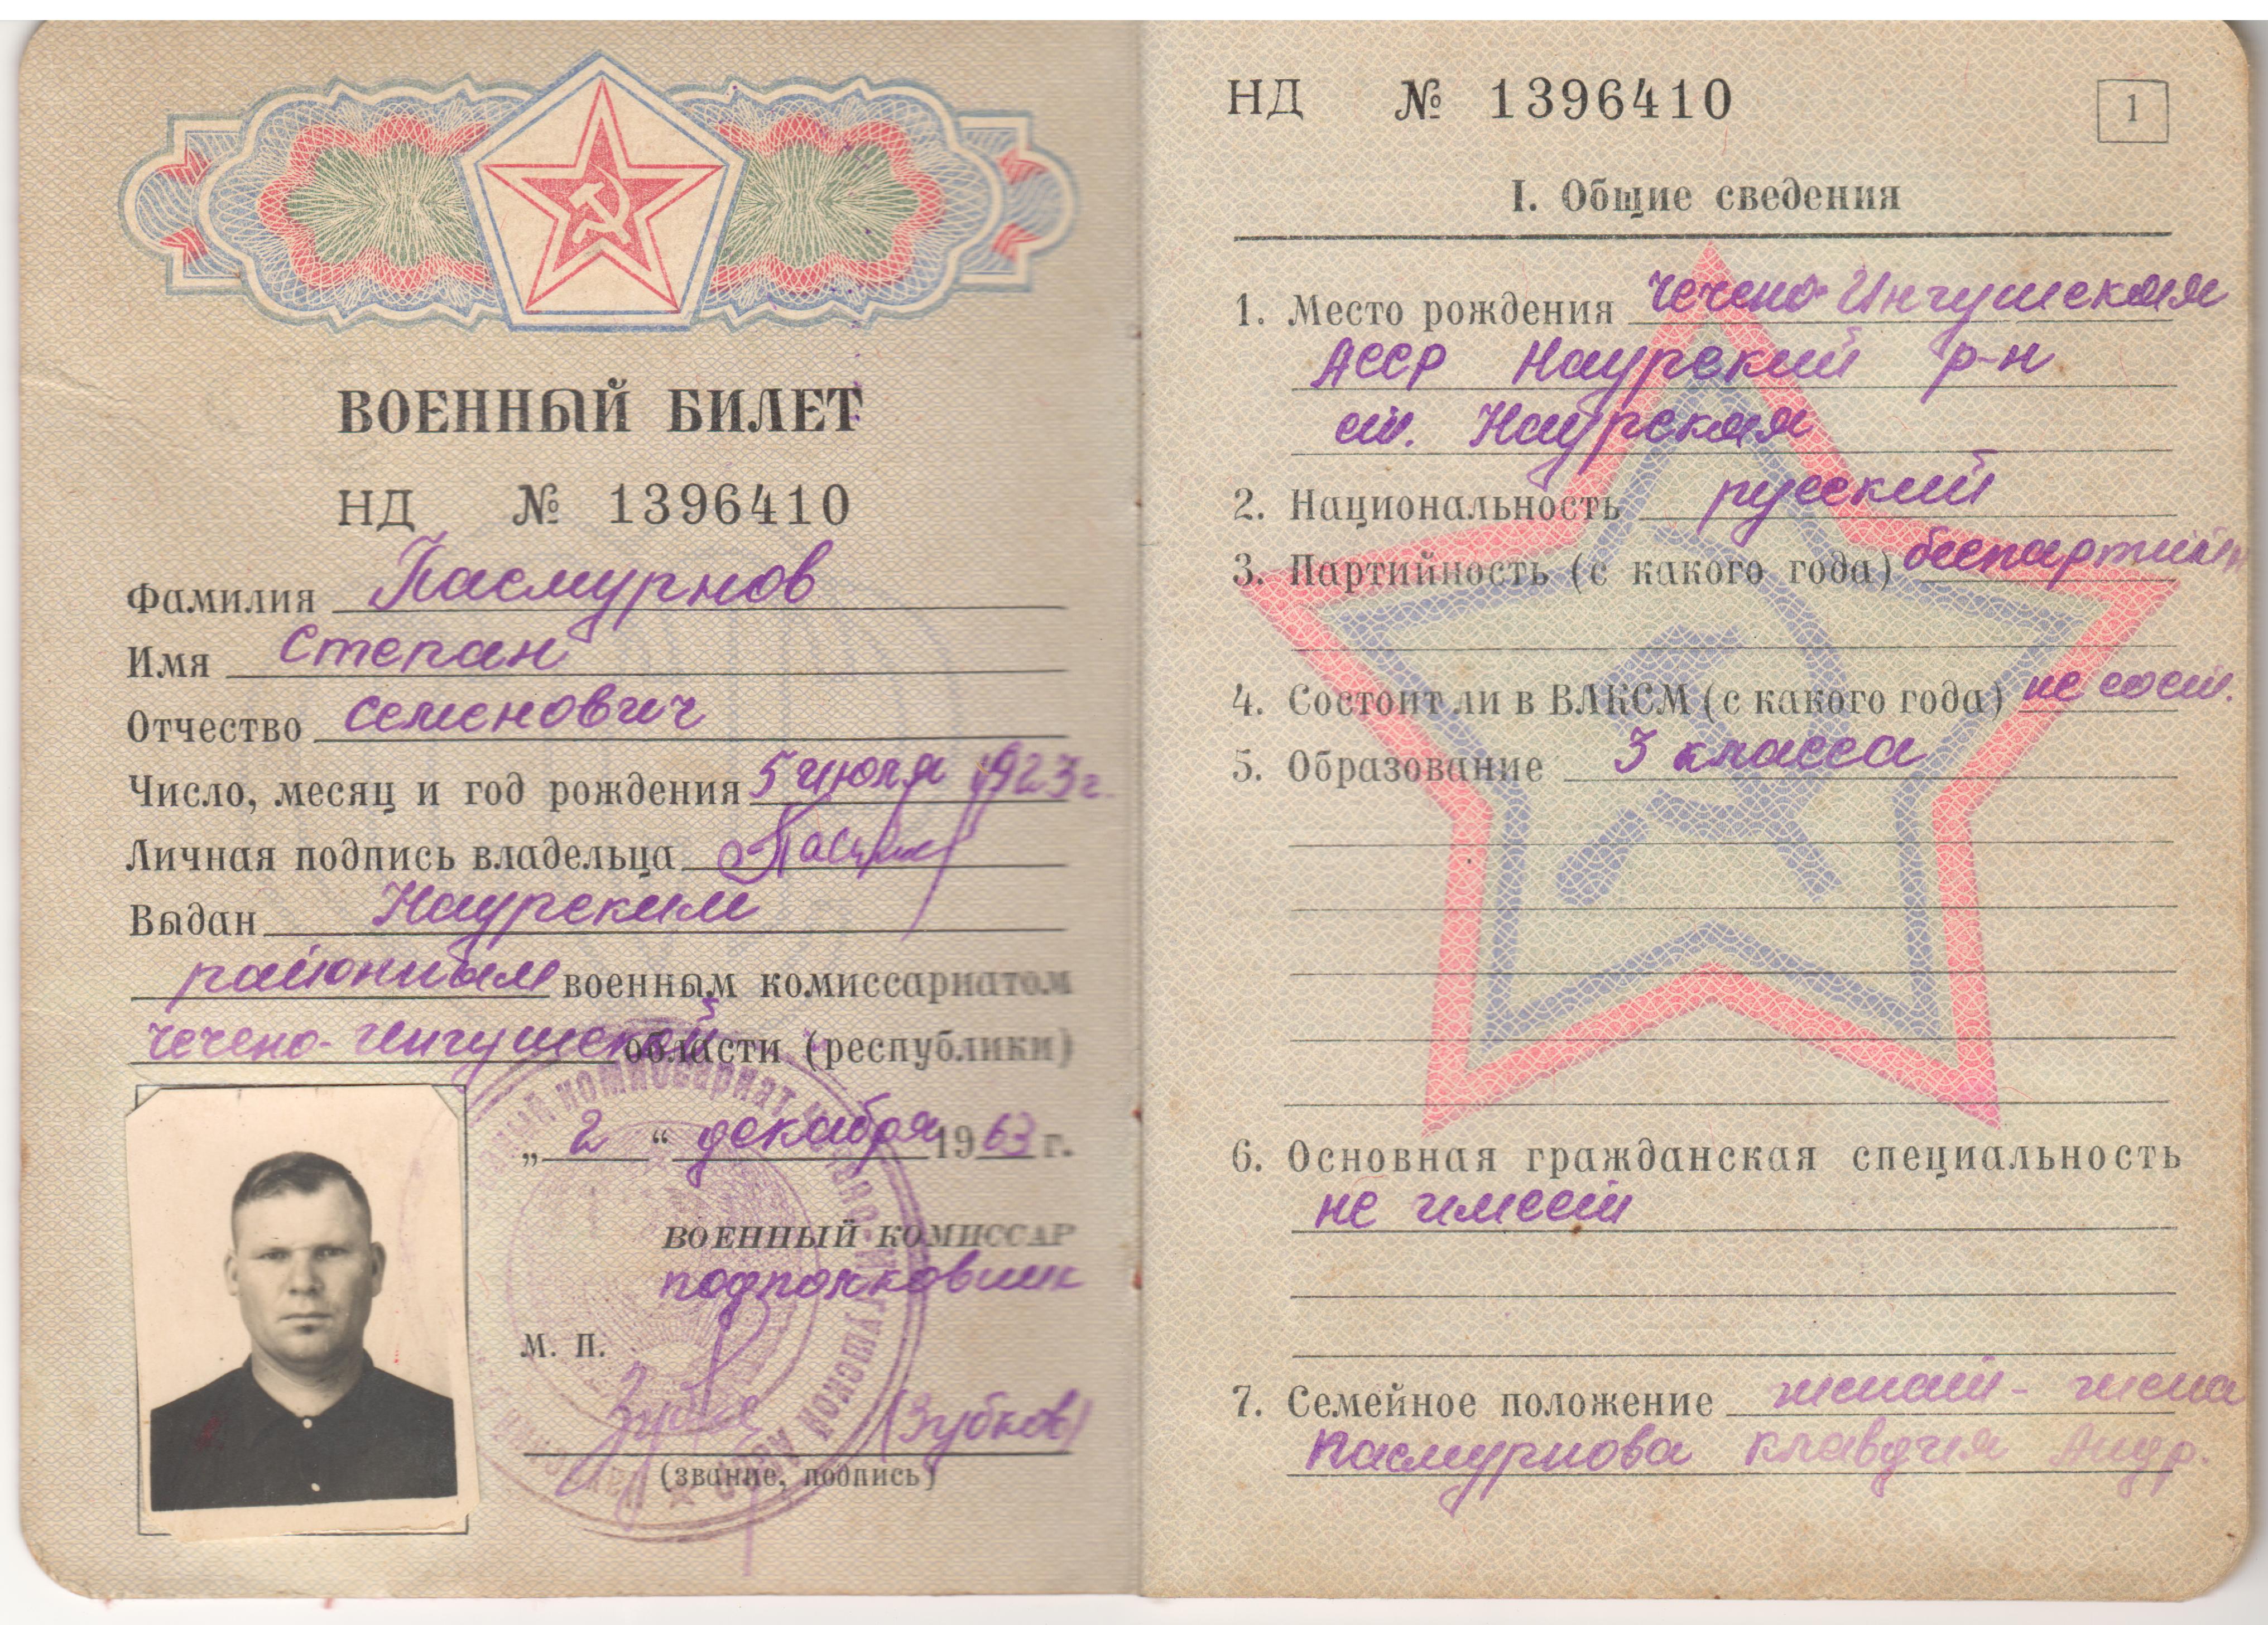 ВОЕННЫЙ БИЛЕТ
НД № 1396410
Фамилия Пасмурнов
Имя Степан
Отчество Семенович
Число, месяц и год рождения 5 июля 1923 г.
Личная подпись владельца
Выдан Наурским
районным военным комиссариатом
Чечено-Ингушской области (республики)
„ 2 “ декабря 1963 г.
ВОЕННЫЙ КОМИССАР
подполковник
М. П.
(Зубков)
(звание, подпись)
НД № 1396410
1
I. Общие сведения
1. Место рождения Чечено-Ингушская
АССР Наурский р-н
ст. Наурская
2. Национальность русский
3. Партийность (с какого года) беспартийн
4. Состоит ли в ВЛКСМ (с какого года) не сост.
5. Образование 3 класса
6. Основная гражданская специальность
не имеет
7. Семейное положение женат - жена
Пасмурнова Клавдия Андр.